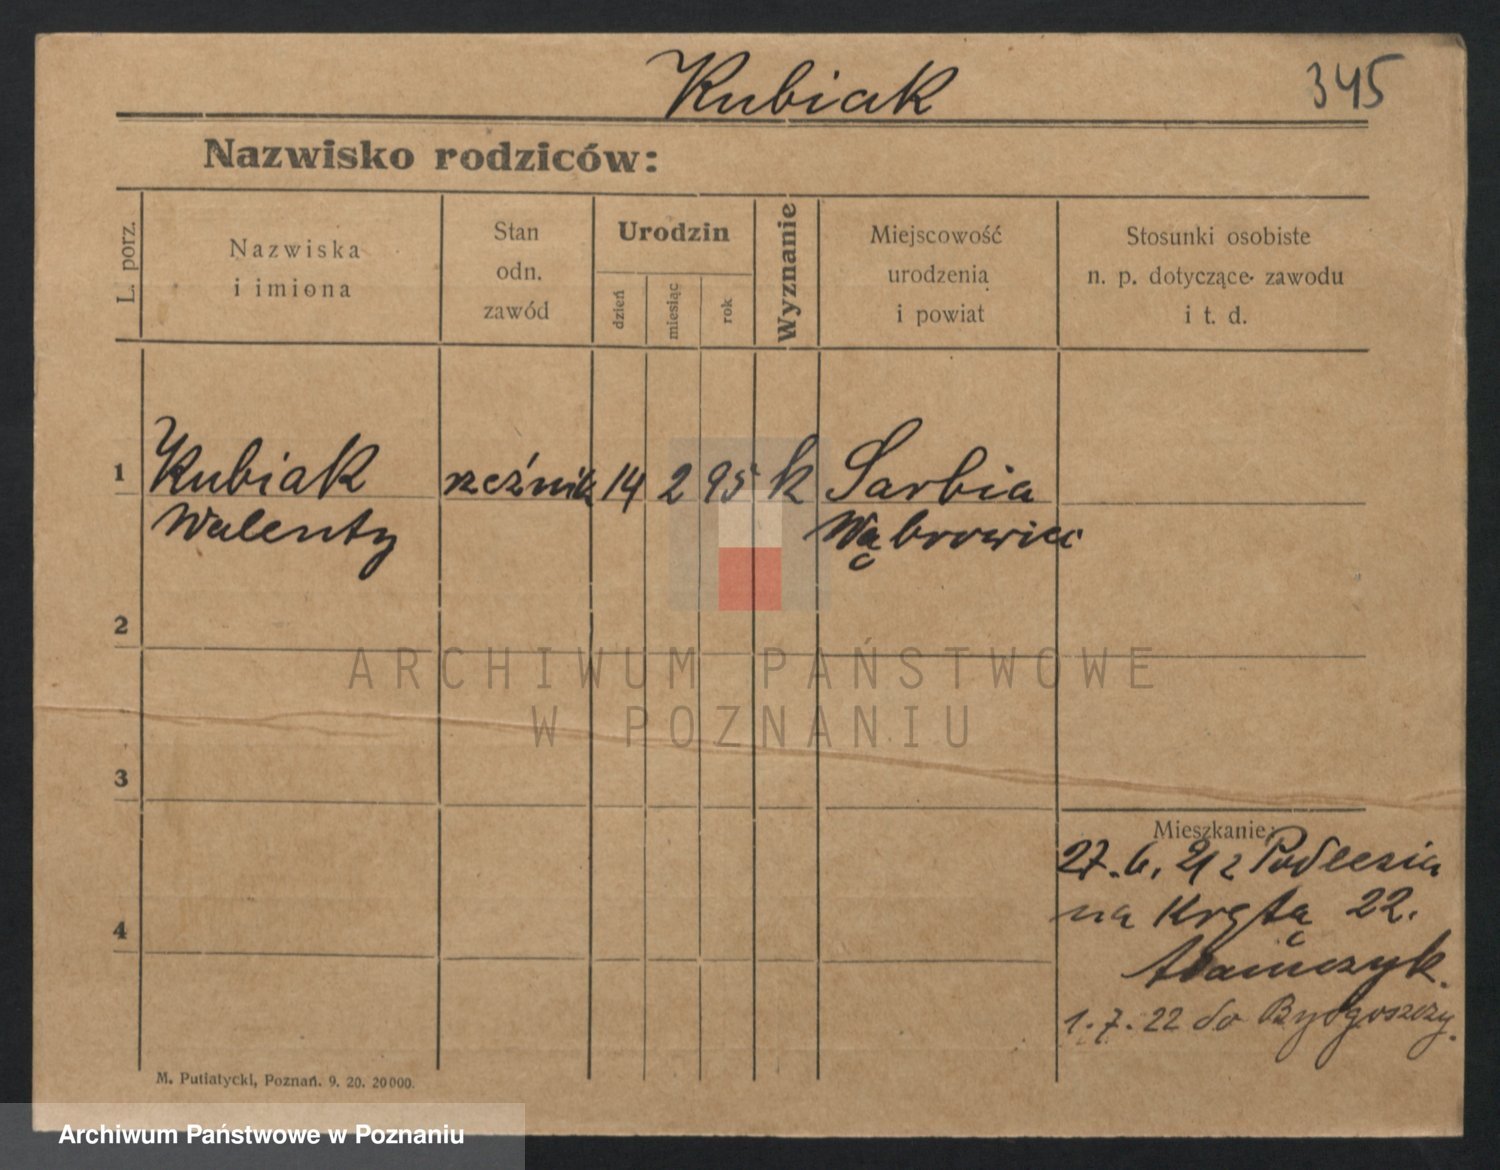 Kubiak
345
Nazwisko rodziców:
L. porz.
Nazwiska
i imiona
Stan
odn.
zawód
Urodzin
dzień
miesiąc
rok
Wyznanie
Miejscowość
urodzenia
i powiat
Stosunki osobiste
n. p. dotyczące zawodu
i t. d.
1
Kubiak rzeźnik 14 2 95 k Sarbia
Walenty Wąbrowiec
2
ARCHIWUM PAŃSTWOWE
W POZNANIU
3
Mieszkanie:
27. 6. 21 z Podlesia
4
na Krętą 22.
Adamczyk.
1. 7. 22 do Bydgoszczy.
M. Putiatycki, Poznań. 9. 20. 20000.
Archiwum Państwowe w Poznaniu